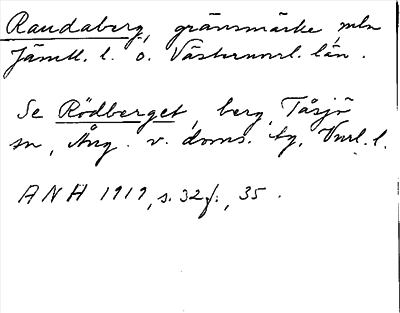 Raudaberg, gränsmärke, mln
Jämtl. l. o. Västernorrl. län.
Se Rödberget, berg, Tåsjö
sn, Ång. v. doms. tg, Vnrl. l.
ANH 1919, s. 32 f., 35.